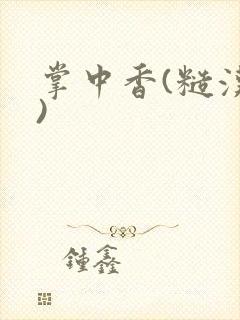 掌中香(糙汉
)
锺鑫